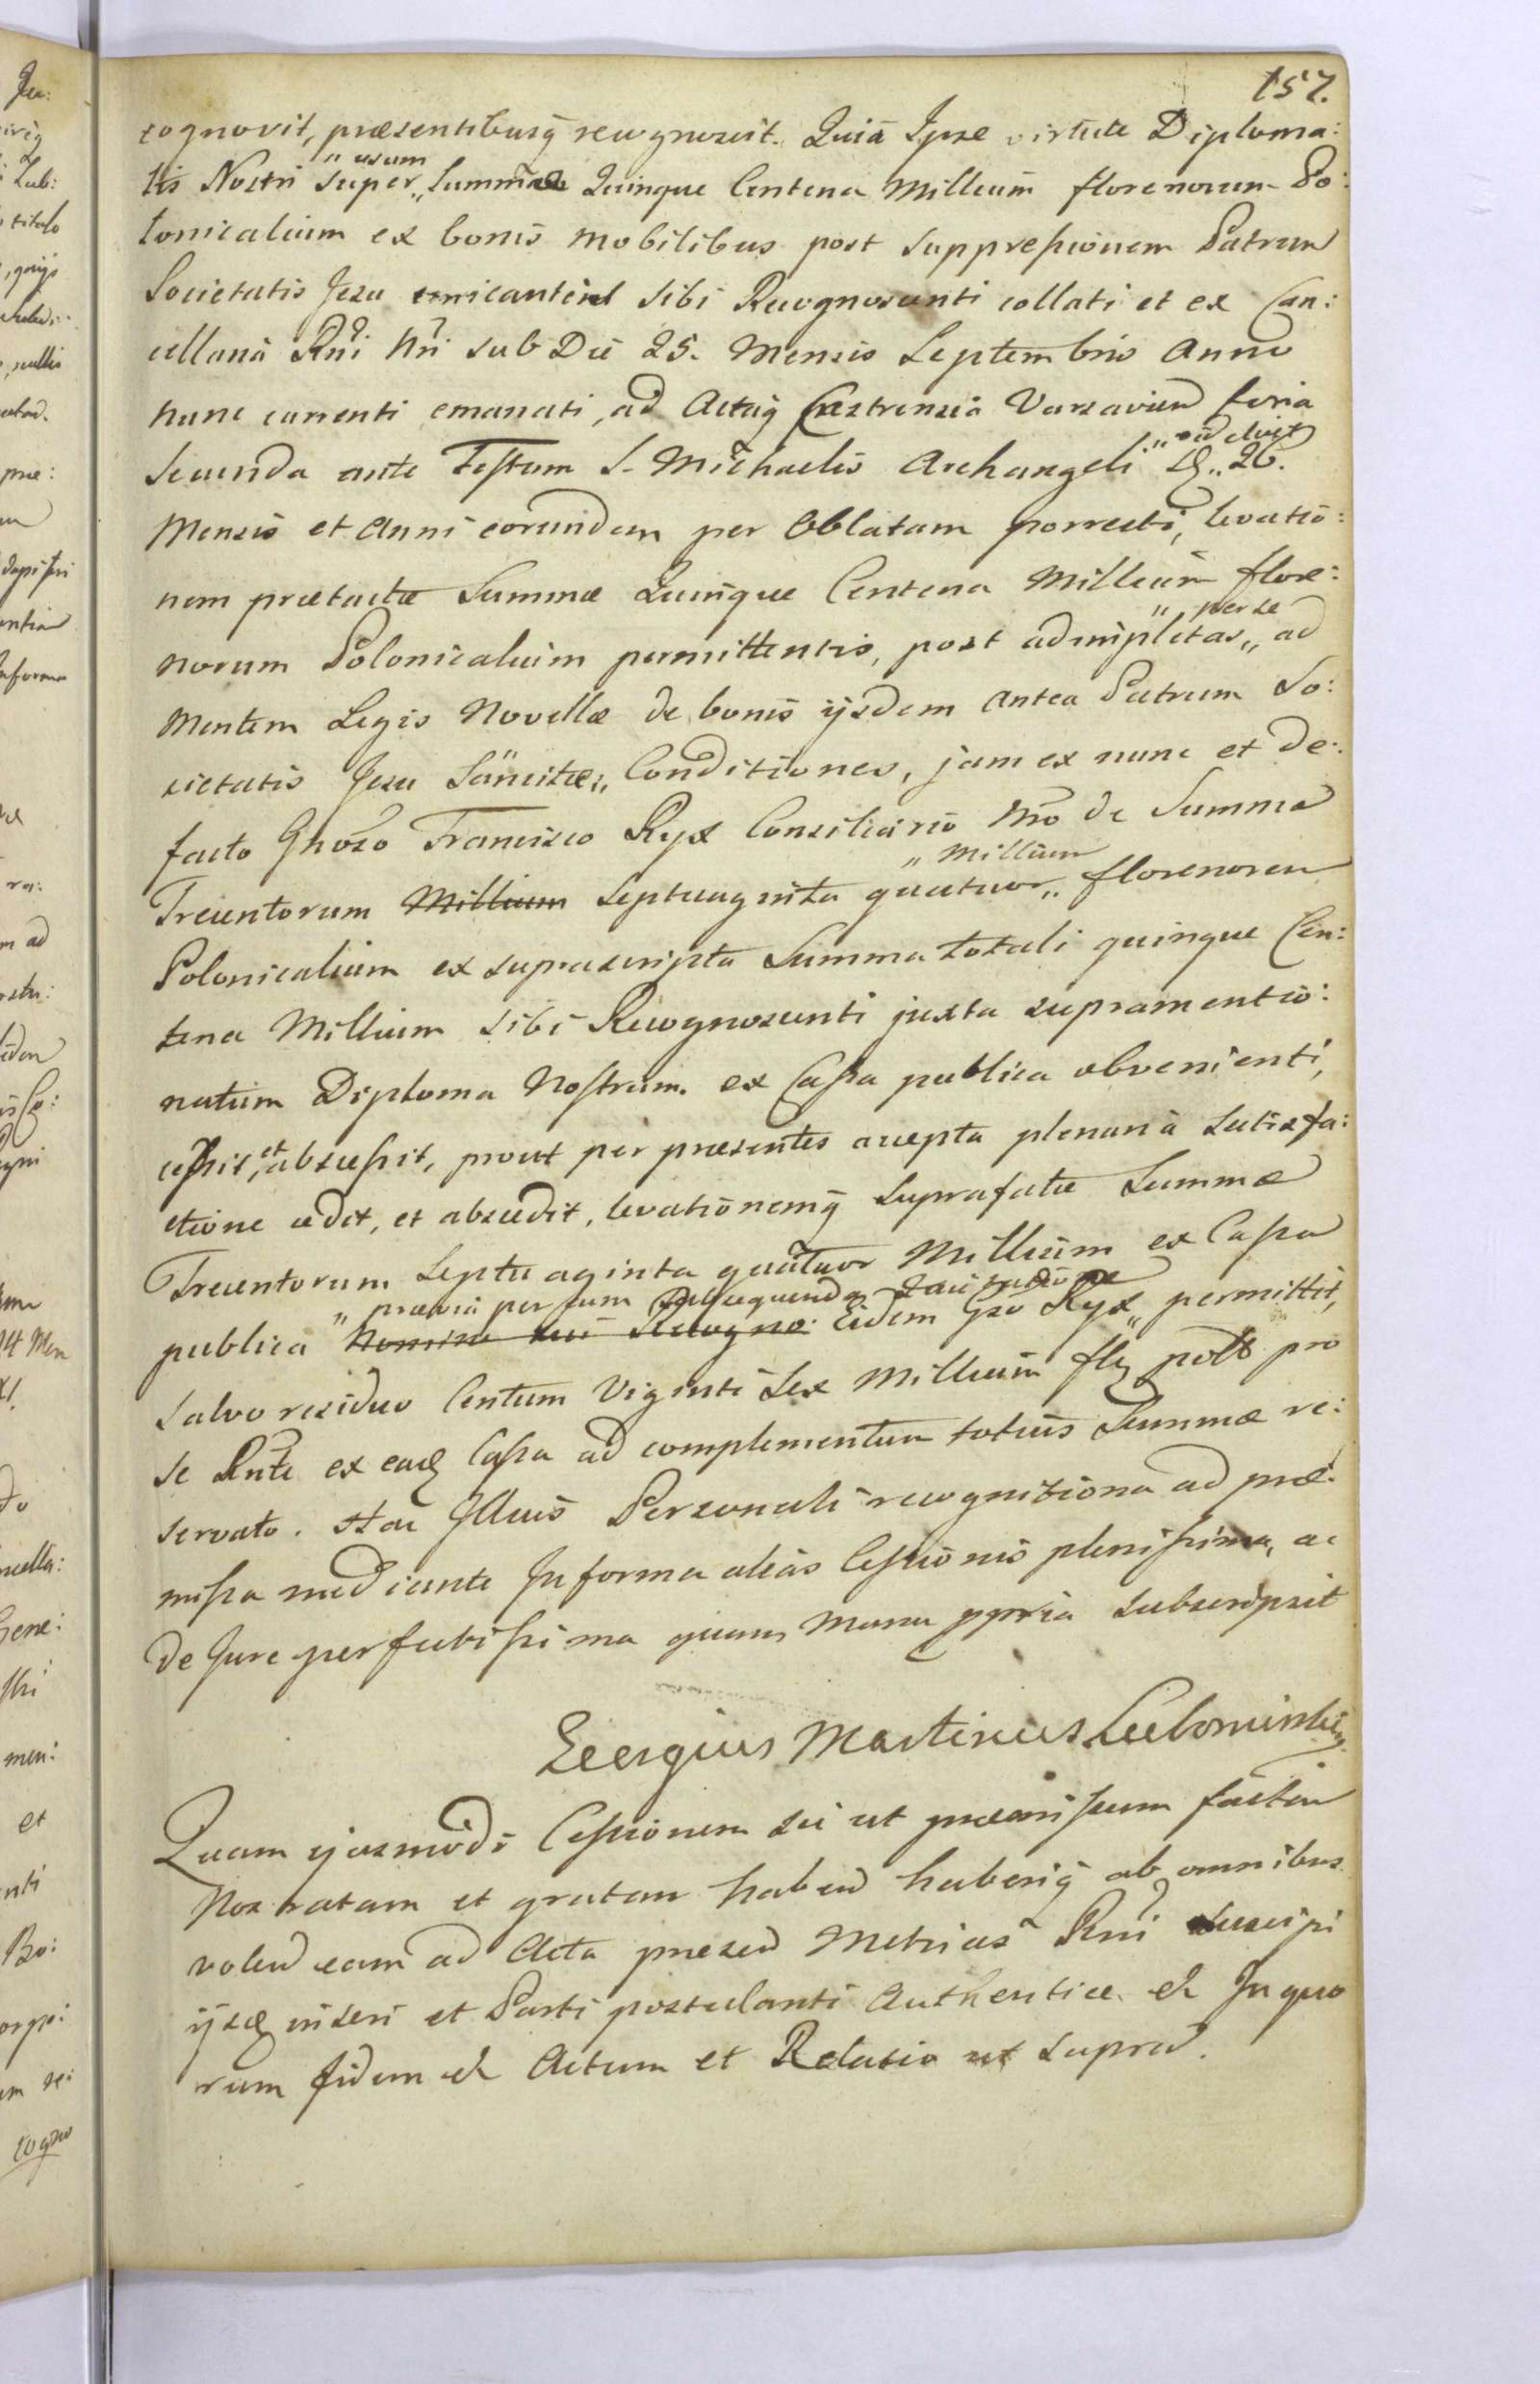 157.
cognovit, præsentibusq̃ recognoscit. Quia Ipse virtute Diploma:
tis Nostri super „ usum „ Summæ Quinque Centena Millium florenorum Po:
lonicalium ex bonis mobilibus post suppressionem Patrum
Societatis Jesu sibi Recognoscenti collati et ex Can:
cellaria Rni Nri sub Die 25. Mensis Septembris Anno
nunc currenti emanati, ad Actaq̃ Castrensia Varsavien feria
secunda ante Festum S. Michaelis Archangeli „ id est die „ 26.
Mensis et Anni eorundem per Oblatam porrecti, levatio:
nem prætactæ Summæ Quinque Centena Millium flore:
norum Polonicalium permittentis, post adimpletas „ per se „ ad
mentem Legis Novellæ de bonis ijsdem antea Patrum So:
cietatis Jesu Sancitæ „ Conditiones, jam ex nunc et de:
facto Gnoso Francisco Ryx Consiliario Nro de Summa
Trecentorum Millium Septuaginta quatuor „ Millium „ florenorum
Polonicalium ex suprascripta Summa totali quinque Cen:
tena Millium sibi Recognoscenti juxta supramentio:
natum Diploma Nostrum ex Cassa publica obvenienti,
cessit, et abscessit, prout per præsentes accepta plenaria satisfa:
ctione cedit, et abscedit, levationemq̃ suprafatæ Summæ
Trecentorum Septuaginta quatuor Millium ex Cassa
publica „ prævia per eum subsequenda quietatione Nomine sui Recogno: Eidem Gso Ryx „ permittit,
salvo residuo Centum Viginti Sex Millium flq polł pro
se Rnte ex eadq Cassa ad complementum totius Summæ re:
servato. Hac Illius Personali recognitione ad præ:
missa mediante In forma alias Cessionis plenissima, ac
de Jure perfectissima quam manu ppria subscripsit
Georgius Martinus Lubomirski
Quam ejusmodi Cessionem sic ut præmissum factam
Nos ratam et gratam haben haberiq̃ ab omnibus
volen eam ad Acta præsen Metrices Rni suscipi
ijsdq inseri et Parti postulanti Authentice et In quo
rum fidem et Actum et Relatio ut supra.